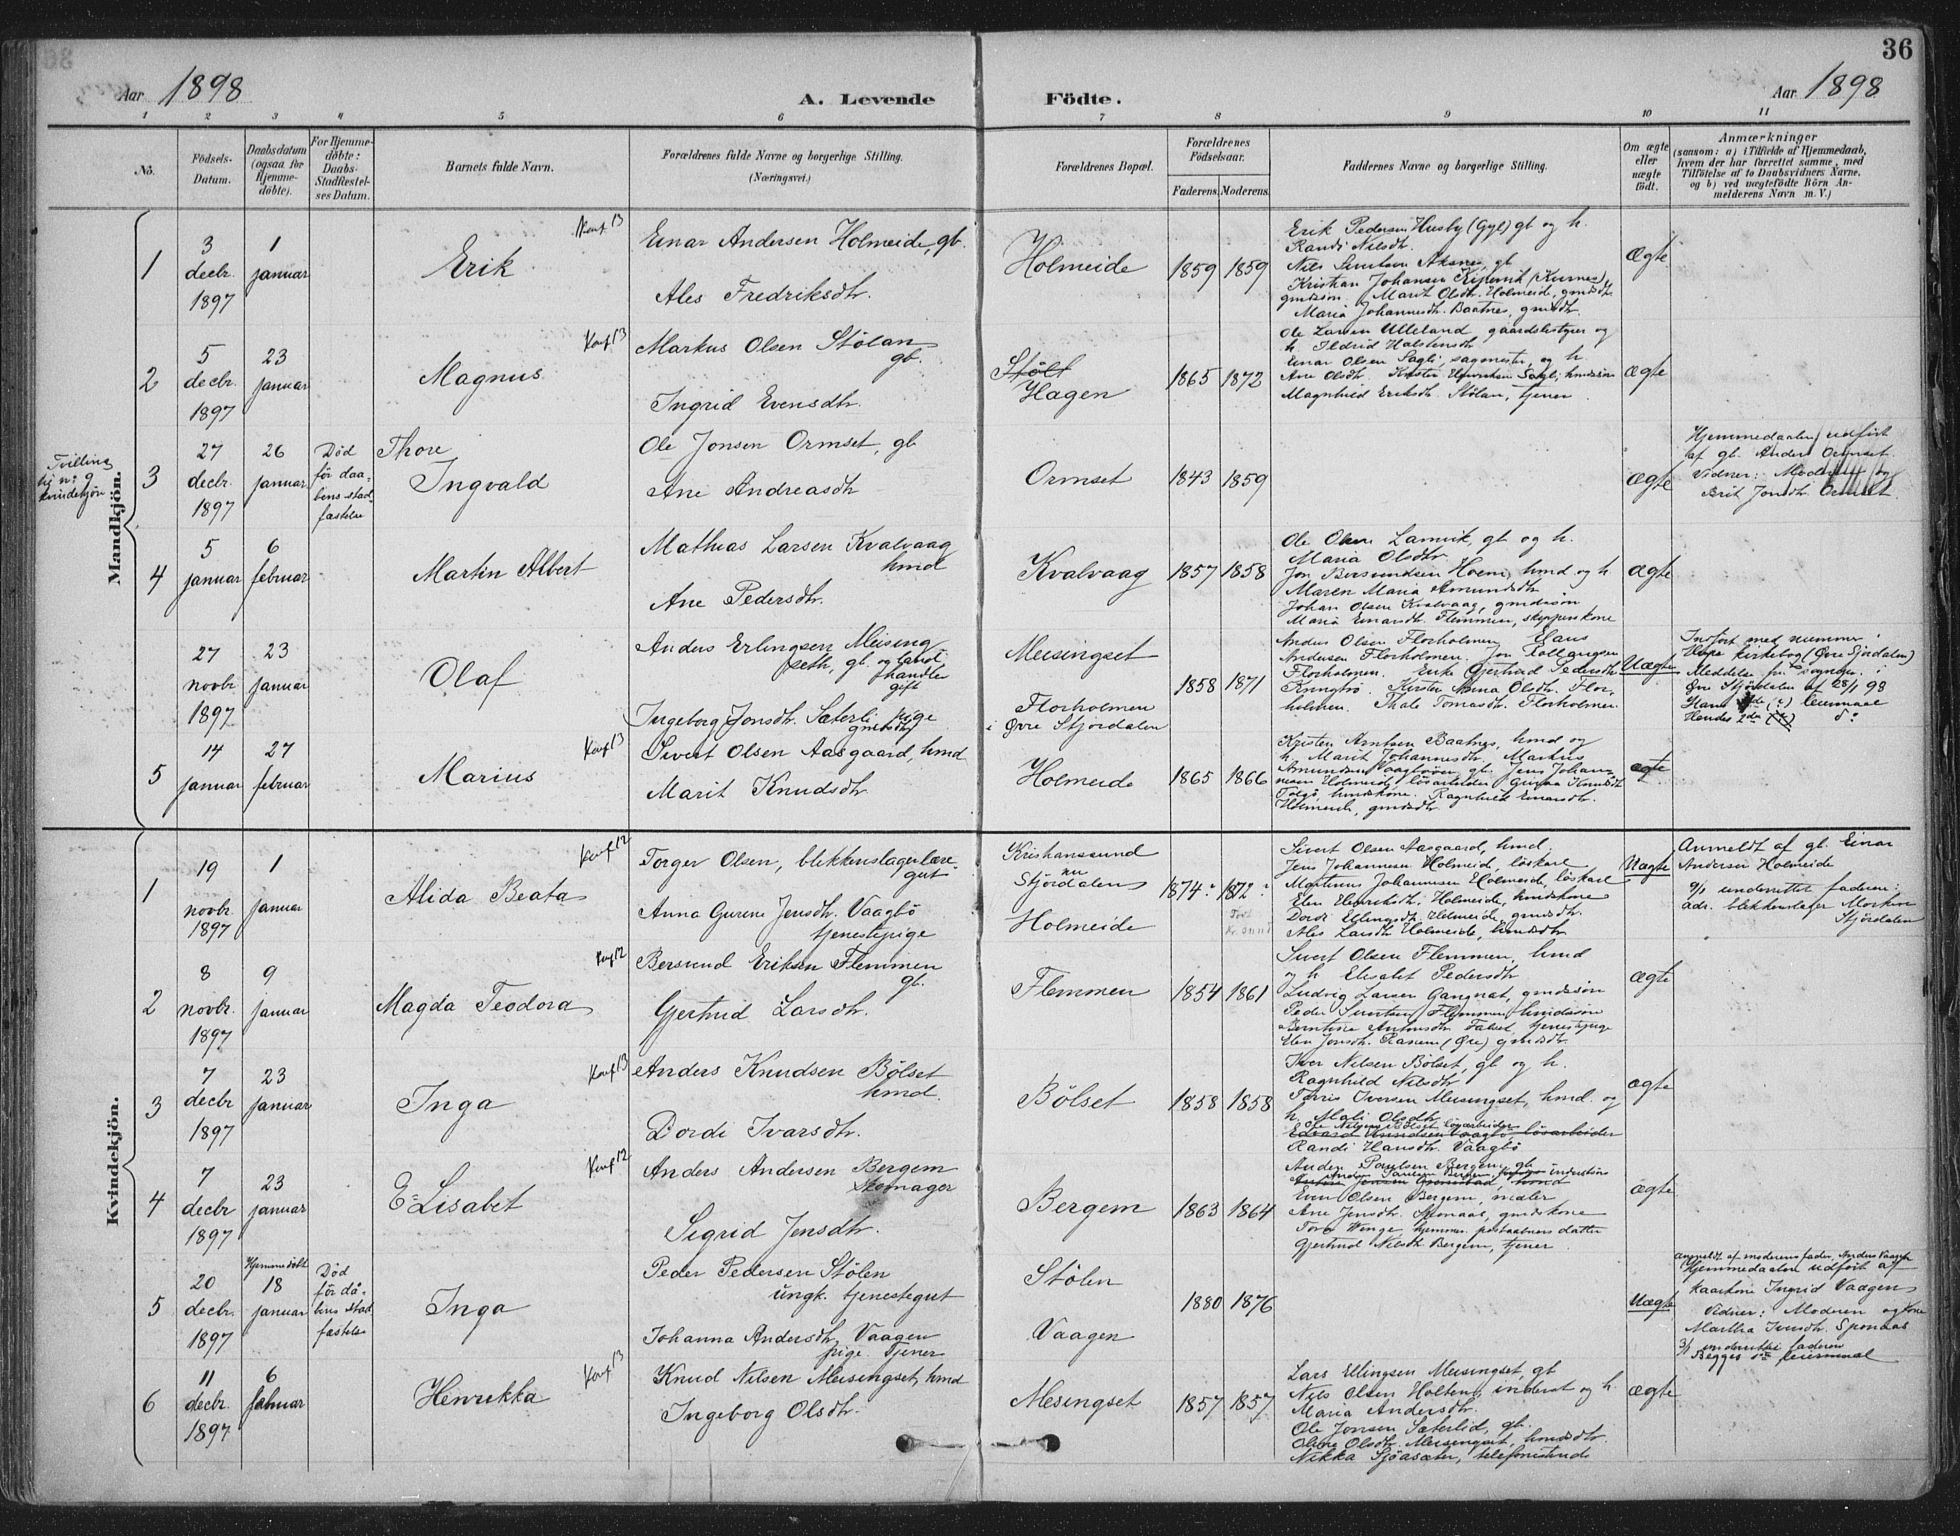 36
Aar 1898
A. Levende Födte.
Aar 1898
1 2 3 4 5 6 7 8 9 10 11
No.
Födsels-Datum.
Daabsdatum (ogsaa for Hjemmedöbte).
For Hjemmedöbte: Daabs-Stadfæstelses Datum.
Barnets fulde Navn.
Forældrenes fulde Navne og borgerlige Stilling.
(Næringsvei.)
Forældrenes Bopæl.
Forældrenes Födselsaar.
Faderens. Moderens.
Faddernes Navne og borgerlige Stilling.
Om ægte eller uægte födt.
Anmærkninger
(saasom: a) i Tilfælde af Hjemmedaab,
hvem der har forrettet samme, med
Tilföielse af to Daabsvidners Navne,
og b) ved uægtefödte Börn An-
melderens Navn m. V.)
Mandkjön.
1
3 decbr. 1897
1 januar
Erik
Konf 13
Einar Andersen Holmeide, gb.
Ales Fredriksdtr.
Holmeide
1859 1859
Erik Pedersen Husby (Gyl) gb og h.
Randi Nilsdtr.
Nils Sivertsen Aksnes, gb
Kristian Johansen
gmdssön Marit Olsdtr. Holmeid, gmdsdtr.
Maria Johannesdtr. Baatnes, gmdsdtr.
Ægte
2
5 decbr. 1897
23 januar
Magnus
Konf. 13
Markus Olsen Stölan
gb.
Ingrid Evensdtr.
Stölt
Hagen
1865 1872
Ole Larsen Ulleland, gaardsbestyrer og
h. Ildrid Halstensdtr
Einar Olsen Sagli, sagmester, og h.
Ane Olsdtr. Kristen Sagli, hmdssön
Magnhild Eriksdtr. Stölan, tjener
Ægte
Tvilling
til n: 9
kvindekjön
3
27 decbr. 1897
26 januar
Död
för daa-
bens stad
fæstelse
Thore
Ingvald
Ole Jonsen Ormset, gb
Ane Andreasdtr
Ormset
1843 1859
Ægte
Hjemmedaaben udfört
af gb. Anders Ormset.
Vidner: Moderen og
Brit Jonsdtr. Ormset.
4
5 januar
6 februar
Martin Albert
Mathias Larsen Kvalvaag
hmd
Ane Pedersdtr.
Kvalvaag
1857 1858
Ole Olsen Lamvik, gb. og h.
Maria Olsdtr
Jon Bersvendsen Hoem, hmd og h
Maren Maria Amundsdtr
Johan Olsen Kvalvaag, gmdssön
Maria Einarsdtr. Flemmen, skipperskone
Ægte
27 novbr 1897
23 januar
Olaf
Anders Erlingsen Meising
seth, gb. og landhandler
gift
Ingeborg Jonsdtr. Sæterli pige
gmdsdtr
Meisingset
Florholmen
i Övre Stjördalen
1858 1871
Anders Olsen Florholmen, Elans
Andersen Florholmen. Jon
Florholmen. Erika Gjertrud Pedersdtr
Kirsten Anna Olsdtr. Flor-
holmen. Thale Tomasdtr. Florholmen
Uægte
Indfört med nummer i
kirkebog (Övre Stjördalen)
Meddelse fra sognepr. i
Övre Stjördalen af 28/1 98
Hans leiermaal
Hendes 2det
5
14 januar
27 februar
Marius
Konf 13
Sivert Olsen Aasgaard, hmd
Marit Knudsdtr.
Holmeide
1865 1866
Kristen Arntsen Baatnes, hmd og
h. Marit Johannesdtr. Markus
Amundsen Vaagböen, gb. Jens Johan-
nesen Holmeid, lösarbeider. Guruaa Knudsdtr
hmdskone. Ragnhild Einarsdtr.
Holmeide, gmdsdtr.
ægte
Kvindekjön.
1
19 novbr. 1897
1 januar
Alida Beata
Konf 12
Torger Olsen, blikkenslagerlære-
gut
Anna Gurine Jensdtr. Vaagbö
tjenestepige
Kristianssund
nu
Stjördalen
Holmeide
1874 1872
Sivert Olsen Aasgaard, hmd.
Jens Johannesen Holmeid, löskarl
Martinus Johannesen Holmeid, löskarl
Elen Holmeide, hmdskone
Dordi Ellingsdtr. Holmeide, gmdsdtr.
Ales Larsdtr Holmeide, hmdsdtr
Uægte
Anmeldt af gb. Einar
Andersen Holmeide
9/1 underrettet faderen:
adr. blikkenslager Morken
Stjördalen
2
8 novbr. 1897
9 januar
Magda Teodora
Konf 12
Bersvend Eriksen Flemmen
gb.
Gjertrud Larsdtr.
Flemmen
1854 1861
Sivert Olsen Flemmen, hmd
og h. Elisabet Pedersdtr
Ludvig Larsen Gangnat, gmdssön
Peder Sivertsen Flemmen, hmdssön
Berntine Antonsdtr. tjenestepige
Elen Jonsdtr. Ranem (Öre) gmdsdtr
ægte
3
7 decbr 1897
23 januar
Inga
Konf 13
Anders Knudsen Bölset
hmd.
Dordi Ivarsdtr.
Bölset
1858 1858
Iver Nilsen Bölset, gb og h.
Ragnhild Nilsdtr
Torris Iversen Meisingset, hmd. og
h. Mali Olsdtr
Ole Nilsen Bölset lösarbeider
Edvard Knudsen Vaagbö lösarbeider
Randi Hansdtr. Vaagbö
ægte
4
7 decbr 1897
23 januar
E=Lisabet
Konf 12
Anders Andersen Bergem
Skomager
Sigrid Jensdtr.
Bergem
1863 1864
Anders Paulsen Bergem, gb
Even Olsen Bergem, maler
Ane Jensdtr. gmdskone
Tora Winge hjemmev. postaabners datter
Gjertrud Nilsdtr Bergem, tjener
ægte
5
20 decbr. 1897
Hjemmedöbt
18 januar
Död
för då-
bens stad
fæstelse
Inga
Peder Pedersen Stölen
ungk. tjenestegut
Johanna Andersdtr. Vaagen
pige. Tjener
Stölen
Vaagen
1880 1876
Uægte
Anmeldt af moderens fader, Anders Vaagen
Hjemmedaaben udfört af
kaarkone Ingrid Vaagen
Vidner: Moderen og kone
Martha Iversdtr. Sponaas
underrettet faderen
Begges 1ste leiermaal
6
11 decbr. 1897
6 januar
Henrikka
Konf 13
Knud Nilsen Meisingset, hmd
Ingeborg Olsdtr.
Mesingset
1857 1857
Lars Ellingsen Meisingset, gb
Nils Olsen Holten, inderst og h.
Maria Andersdtr.
Ole Jonsen Sæterlid, gb.
Oline Olsdtr. Meisingset, hmdsdtr.
Nikka Sjöasæter, telefonistinde
ægte